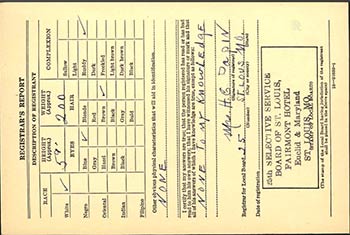 REGISTRAR'S REPORT
DESCRIPTION OF REGISTRANT
RACE
HEIGHT
(Approx.)
WEIGHT
(Approx.)
COMPLEXION
5' 7"
200
EYES
HAIR
White ✓
Blue ✓
Blonde
Sallow
Negro
Gray
Red
Light
Oriental
Hazel
Brown
Ruddy ✓
Indian
Brown
Black
Dark
Filipino
Black
Gray
Freckled
Bald
Light brown
Dark brown
Black
Other obvious physical characteristics that will aid in identification
NONE
I certify that my answers are true; that the person registered has read or has had
read to him his own answers; that I have witnessed his signature or mark and that
all of his answers of which I have knowledge are true, except as follows:
NONE TO MY KNOWLEDGE
Mrs. H. G.
(Signature of registrar)
Registrar for Local Board 25 St. Louis Mo.
(Number) (City or county) (State)
Date of registration
25th SELECTIVE SERVICE
BOARD OF ST. LOUIS,
FAIRMONT HOTEL
Euclid & Maryland
ST. LOUIS, MO.